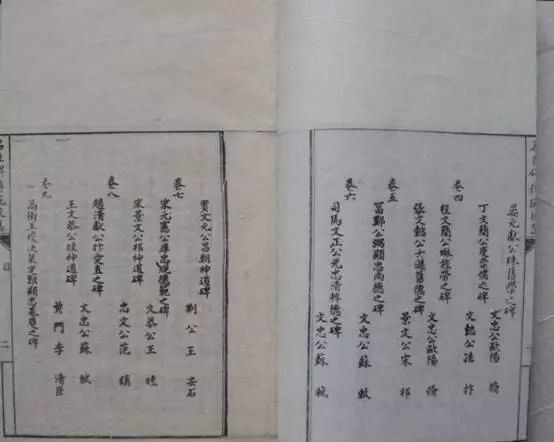 晏元獻公殊舊學之碑
文忠公歐陽 脩
丁文簡公度崇儒之碑
文懿公孫 抃
卷四
程文簡公琳旌勞之碑
文忠公歐陽 脩
張文懿公士遜舊德之碑
景文公宋 祁
卷五
富鄭公弼顯忠尚德之碑
文忠公蘇 軾
卷六
司馬文正公光忠清粹德之碑
文忠公蘇 軾
賈文元公昌朝神道碑
荆公王 安石
卷七
宋元憲公庠忠規德範之碑
文恭公王 珪
宋景文公祁神道碑
忠文公范 鎮
卷八
趙清獻公抃愛直之碑
文忠公蘇 軾
王文恭公珪神道碑
黄門李 清臣
卷九
高衛王瓊決策定難顯忠基慶之碑
目
二